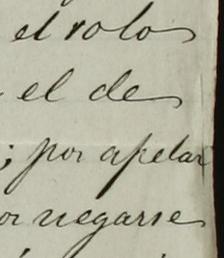 el rolo
el de
; por apelar
or negarse